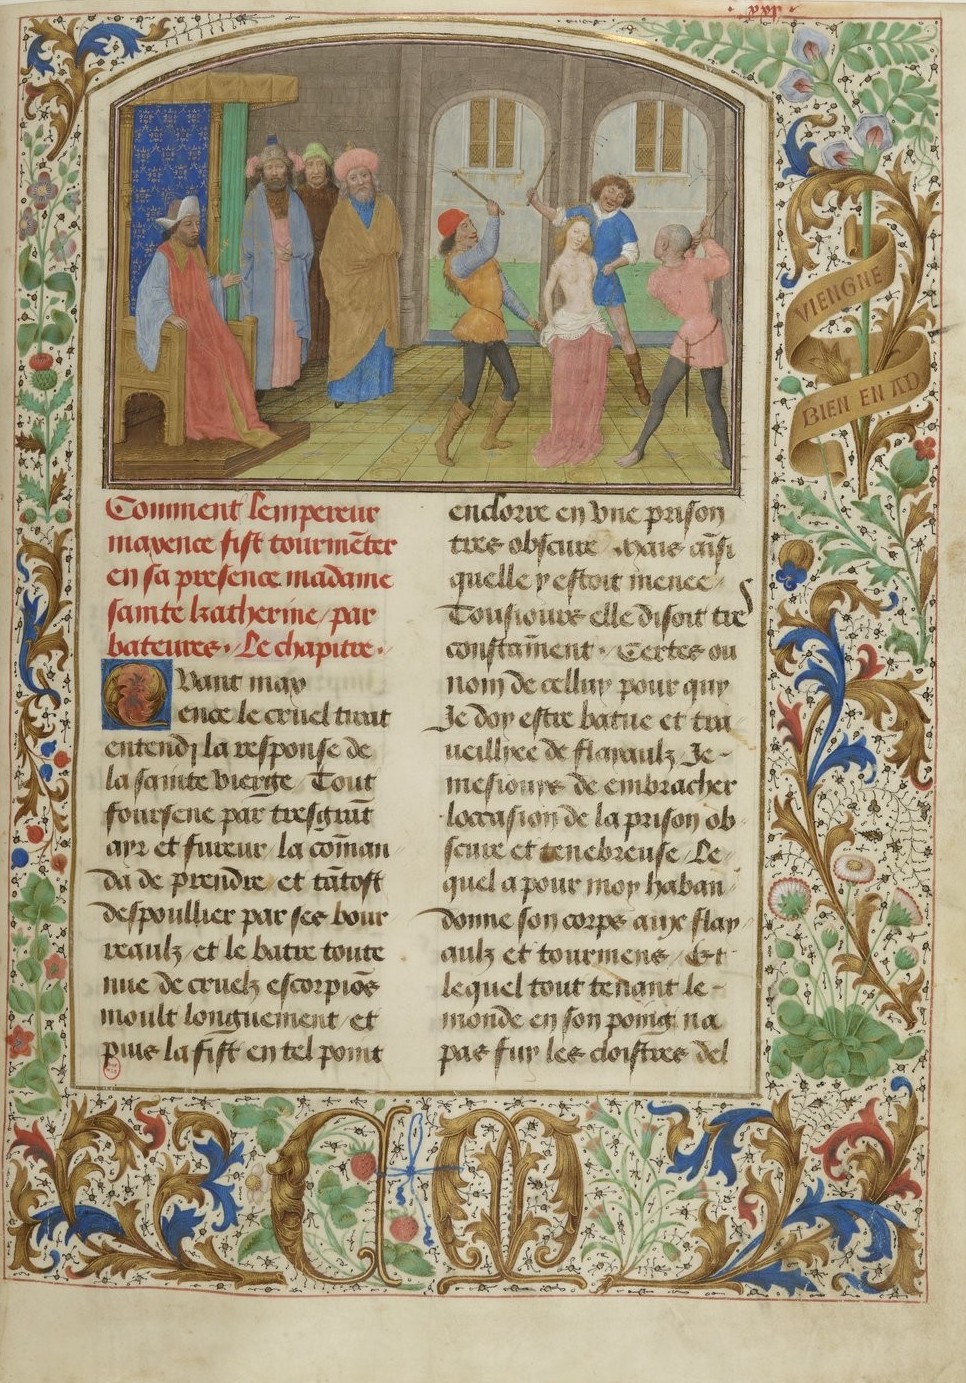 Comment lempereur
maxence fist tourmẽter
en sa presence madame
sainte katherine / par
bateures. Le chapitre.
Quant max
ence le cruel tirant
entendi la response de
la sainte vierge / Tout
foursene par tresgrãt
ayr et fureur la cõman
da de prendre et tãtost
despoullier par ses bour
reaulz / et le batre toute
nue de cruelz escorpiõs
moult longuement / et
puis la fist en tel point
enclorre en vne prison
tres obscure . Mais aĩsi
quelle y estoit menee /
Tousiours elle disoit tres
constãment . Certes ou
nom de celluy pour quy
Je doy estre batue et tra
ueillyee de flayaulz Je
mesiouys de embracher
loccasion de la prison ob
scure et tenebreuse / Le
quel a pour moy haban
donne son corps aux flay
aulz et tourmens / Et
lequel tout tenant le
monde en son poing na
pas fuy les cloistres del
VIENGNE
BIEN EN AD